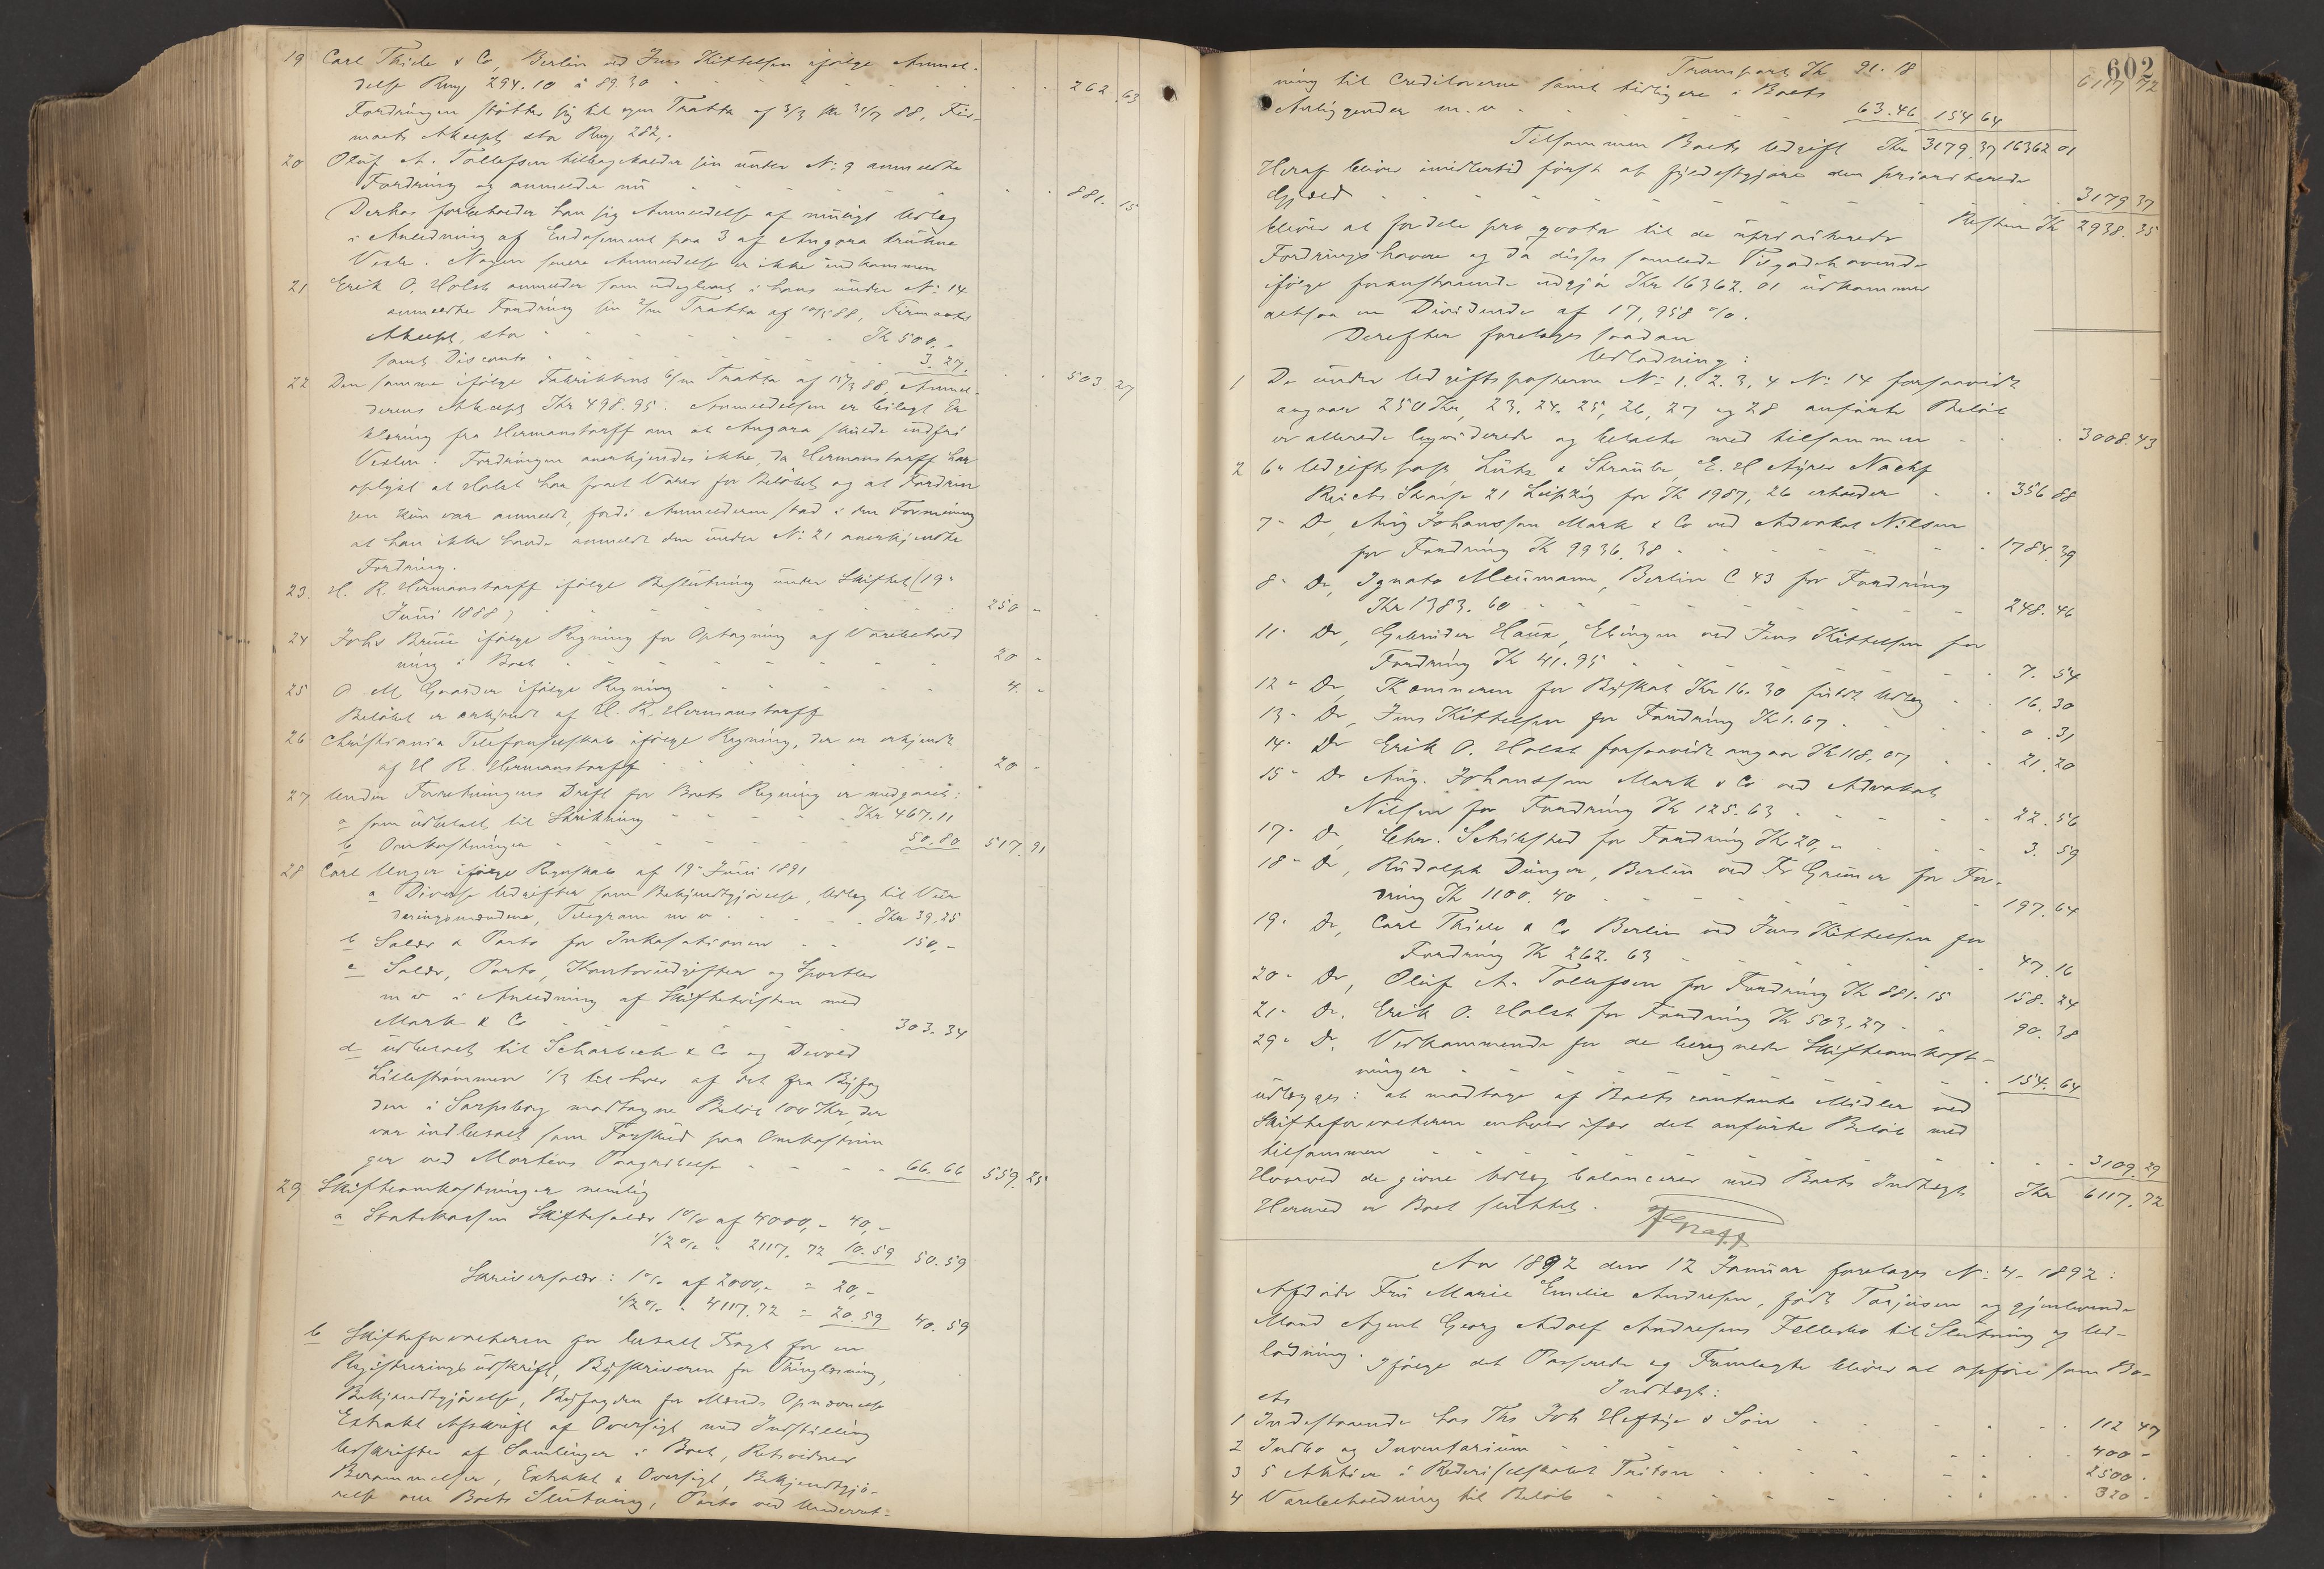 19 Carl Thiele & Co, Berlin ved Jens Kittelsen ifölge Anmel-
delse Rmg 294.10 à 89.30 - - - 262.63
Fordringen stötter sig til egen Tratta af 3/3 pr 31/7 88, Fir-
maets Akcept stor Rmg 282,-
20 Oluf A. Tollefsen tilbagekalder sin under No: 9 anmeldte
Fordring og anmelder nu - - - 881.15
Derhos forbeholder han sig Anmeldelse af muligt Udlæg
i Anledning af Endosement paa 3 af Angora trukne
Vexler. Nogen senere Anmeldelse er ikke indkommen
21 Erik O. Holst anmelder som udeglemt i hans under No: 14
anmeldte Fordring sin 2/m Tratta af 10/5 88, Firmaets
Akcept, stor - - - Kr 500,-
samt Disconto - - - 3.27. 503.27
22 Den samme ifölge Fabrikkens 6/m Tratta af 15/3 88, Anmel-
derens Akcept Kr 498.95. Anmeldelsen er bilagt Er
klæring fra Hermanstorff om at Angora skulde indfri
Vexlen. Fordringen anerkjendes ikke, da Hermanstorff har
oplyst at Holst har faaet Varer for Beløbet og at Fordrin
gen kun var anmeldt, fordi Anmelderen stod i den Formening
at han ikke havde anmeldt den under No: 21 anerkjendte
Fordring.
23. H. R. Hermanstorff ifölge Beslutning under Skiftet (19-
Juni 1888) - - - 250 -
24 Johs Bruu ifölge Regning for Optagning af Varebehold
ning i Boet - - - 20 -
25 O M Gaarder ifölge Regning - - - 4. -
Beløbet er erkjendt af H. R. Hermanstorff
26 Christiania Telefonselskab ifölge Regning, der er erkjendt
af H R. Hermanstorff - - - 20 -
27 Under Forretningens Drift for Boets Regning er medgaaet:
a som udbetalt til Skrikning - - - Kr 467.11
b Omkostninger - - - 50.80 517.91
28 Carl Unger ifölge Regnskab af 19- Juni 1891
a Diverse Udgifter som Bekjendtgjörelse, Udlæg til Vur
deringsmændene, Telegram m v - - - Kr 39.25
b Salær & Porto for Inkasationen - - 150,-
c Salær, Porto, Kontorudgifter og Sportler
m v i Anledning af Skiftetvisten med
Mark & Co - - - 303.34
d udbetalt til Scharbeck & Co og
Lilleströmmen 1/3 til hver af det fra Byfog
den i Sarpsborg modtagne Beløb 100 Kr, der
var indbetalt som Forskud paa Omkostnin
ger ved Mortens Paagribelse - - - 66.66 559.25
29 Skifteomkostninger nemlig
a Statskassen Skiftesalær 1% af 4000,- 40,-
1/2% " 2117.72 10.59 50.59
Skriversalær: 1% af 2000,- = 20,-
1/2% " 4117.72 = 20.59 40.59
b Skifteforvalteren for betalt Fragt for en
Registreringsudskrift, Byskriveren for Thinglæsning,
Bekjendtgjörelse, Byfogden for Mænds Opnævnelse
Extrakt Afskrift af Oversigt med Indstilling
Udskrifter af Samlinger i Boet, Retsvidner
Berammelser, Extrakt & Oversigt, Bekjendtgjö-
relse om Boets Slutning, Porto ved Underret-
602
Transport Kr 91.18 6117 72
ning til Creditorerne samt tidligere i Boets
Anliggender m.v - - - 63.46 154 64
Tilsammen Boets Udgift Kr 3179.37 16362 01
Heraf bliver imidlertid först at fyldestgjöre den prioriterede
Gjæld - - - 3179 37
Resten Kr 2938.35
bliver at fordele pro qvota til de uprioriterede
Fordringshavere og da disses samlede Tilgodehavende
ifölge foranstaaende udgjör Kr 16362.01 udkommer
altsaa en Dividende af 17,958 %.
Derefter foretoges saadan
Udlodning:
1 De under Udgiftsposterne No: 1. 2. 3. 4 No: 14 forsaavidt
angaar 250 Kr, 23. 24. 25, 26, 27 og 28 anførte Beløb
er allerede liqviderede og betalte med tilsammen - - 3008.43
2 6- Udgiftspost Lütz & Straube, E. H Nachf
Reichs Strasse 21 Leipzig for Kr 1987,26 erholder - - 356 88
7- Do, Aug Johansson Mark & Co ved Advokat Nilsen
for Fordring Kr 9936.38 - - - 1784.39
8- Do, Ignatz Neumann, Berlin C 43 for Fordring
Kr 1383.60 - - - 248.46
11- Do, Gebrüder Haux, Ebingen ved Jens Kittelsen for
Fordring Kr 41.95 - - - 7.54
12- Do, Kæmneren for Byskat Kr 16.30 fuldt Udlæg - - 16.30
13- Do, Jens Kittelsen for Fordring Kr 1.67 - - - 0.31
14- Do Erik O. Holst forsaavidt angaar Kr 118,07 - - 21.20
15- Do Aug. Johansson Mark & Co ved Advokat
Nilsen for Fordring Kr 125.63 - - - 22.56
17- Do, Chr. Schibsted for Fordring Kr 20,- - - - 3.59
18- Do, Rudolph Dünger, Berlin ved Fr Gruner for For-
dring Kr 1100.40 - - - 197.64
19- Do, Carl Thiele & Co Berlin ved Jens Kittelsen for
Fordring Kr 262.63 - - - 47.16
20- Do, Oluf A. Tollefsen for Fordring Kr 881.15 158.24
21- Do, Erik O. Holst for Fordring Kr 503.27 - - 90.38
29- Do, Vedkommende for de beregnede Skifteomkost-
ninger - - - 154.64
udlægges: at modtage af Boets contante Midler ved
Skifteforvalteren enhver især det anførte Beløb med
tilsammen - - - 3109.29
Hvorved de givne Udlæg balancerer med Boets Indtægt Kr 6117.72
Hermed er Boet sluttet.
Aar 1892 den 12 Januar foretoges No: 4- 1892:
Afdøde Fru Marie Emelie Andresen, født Torjusen og gjenlevende
Mand Agent Georg Adolf Andresens Fellesbo til Slutning og Ud-
lodning. Ifölge det Passerede og Fremlagte bliver at opføre som Bo-
ets Indtægt:
1 Indestaaende hos Ths Joh Heftye & Sön - - - 112 47
2 Indbo og Inventarium - - - 400 -
3 5 Aktier i Rederiselskabet Triton - - - 2500 -
4 Varebeholdning til Beløb - - - 320 -